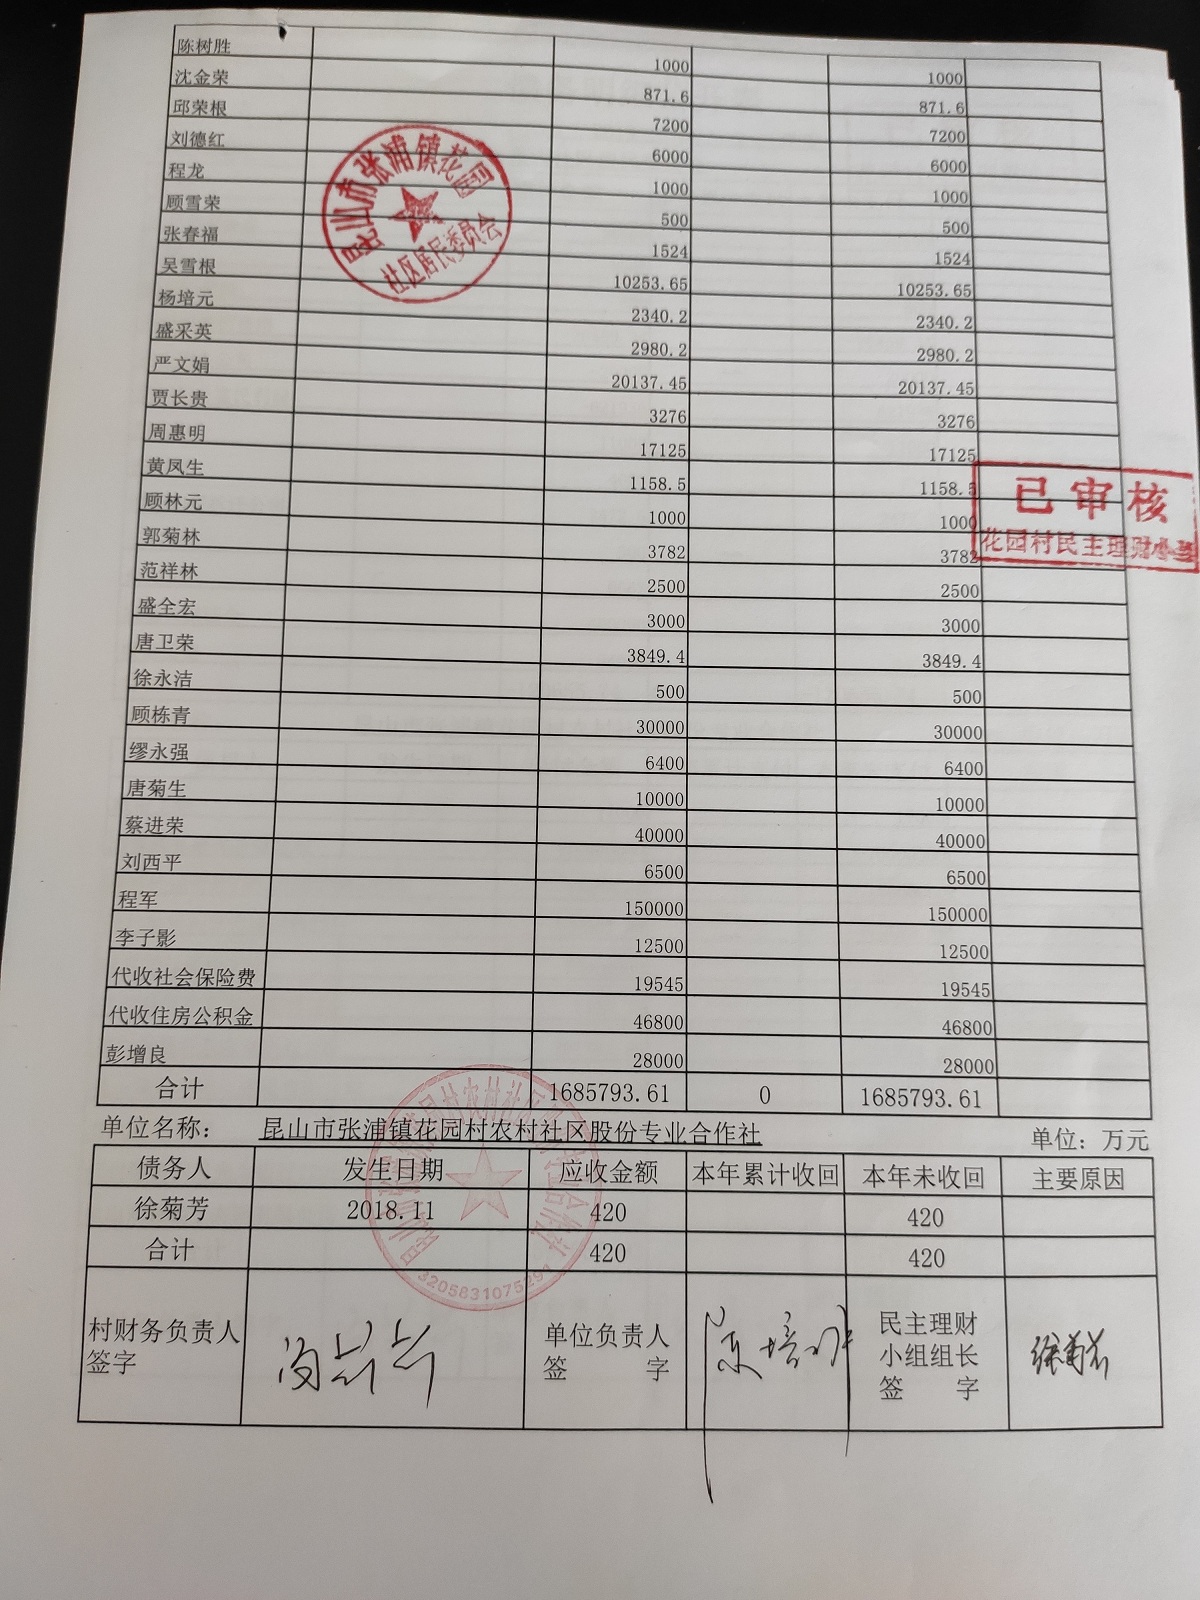 陈树胜 1000 1000
沈金荣 871.6 871.6
邱荣根 7200 7200
刘德红 6000 6000
程龙 1000 1000
顾雪荣 500 500
张春福 1524 1524
吴雪根 10253.65 10253.65
杨培元 2340.2 2340.2
盛采英 2980.2 2980.2
严文娟 20137.45 20137.45
贾长贵 3276 3276
周惠明 17125 17125
黄凤生 1158.5 1158.5
顾林元 1000 1000
郭菊林 3782 3782
范祥林 2500 2500
盛全宏 3000 3000
唐卫荣 3849.4 3849.4
徐永洁 500 500
顾栋青 30000 30000
缪永强 6400 6400
唐菊生 10000 10000
蔡进荣 40000 40000
刘西平 6500 6500
程军 150000 150000
李子影 12500 12500
代收社会保险费 19545 19545
代收住房公积金 46800 46800
彭增良 28000 28000
合计 1685793.61 0 1685793.61
昆山市张浦镇花园
社区居民委员会
已审核
花园村民主理财小组
单位名称： 昆山市张浦镇花园村农村社区股份专业合作社 单位：万元
债务人 发生日期 应收金额 本年累计收回 本年未收回 主要原因
徐菊芳 2018.11 420 420
合计 420 420
3205831075297
村财务负责人
签字
单位负责人
签 字
民主理财
小组组长
签 字
徐菊芳